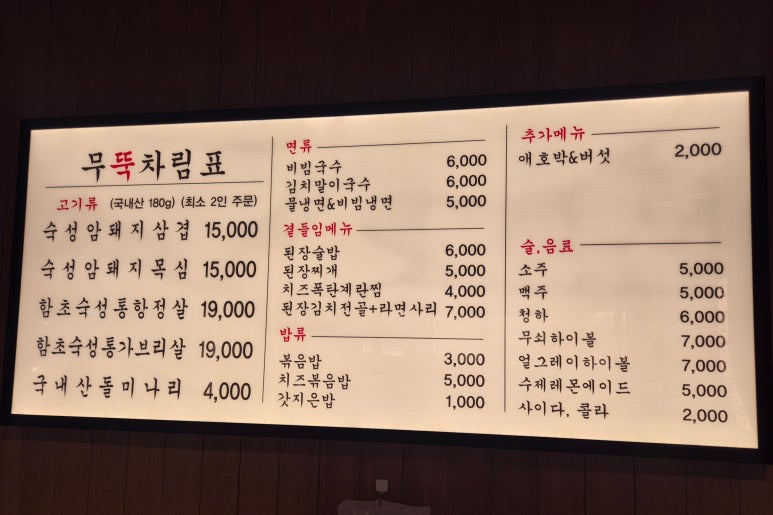 무뚝차림표
고기류 (국내산 180g) (최소 2인 주문)
숙성암돼지삼겹 15,000
숙성암돼지목심 15,000
함초숙성통항정살 19,000
함초숙성통가브리살 19,000
국내산돌미나리 4,000
면류
비빔국수 6,000
김치말이국수 6,000
물냉면&비빔냉면 5,000
곁들임메뉴
된장술밥 6,000
된장찌개 5,000
치즈폭탄계란찜 4,000
된장김치전골+라면사리 7,000
밥류
볶음밥 3,000
치즈볶음밥 5,000
갓지은밥 1,000
추가메뉴
애호박&버섯 2,000
술,음료
소주 5,000
맥주 5,000
청하 6,000
무쇠하이볼 7,000
얼그레이하이볼 7,000
수제레몬에이드 5,000
사이다, 콜라 2,000